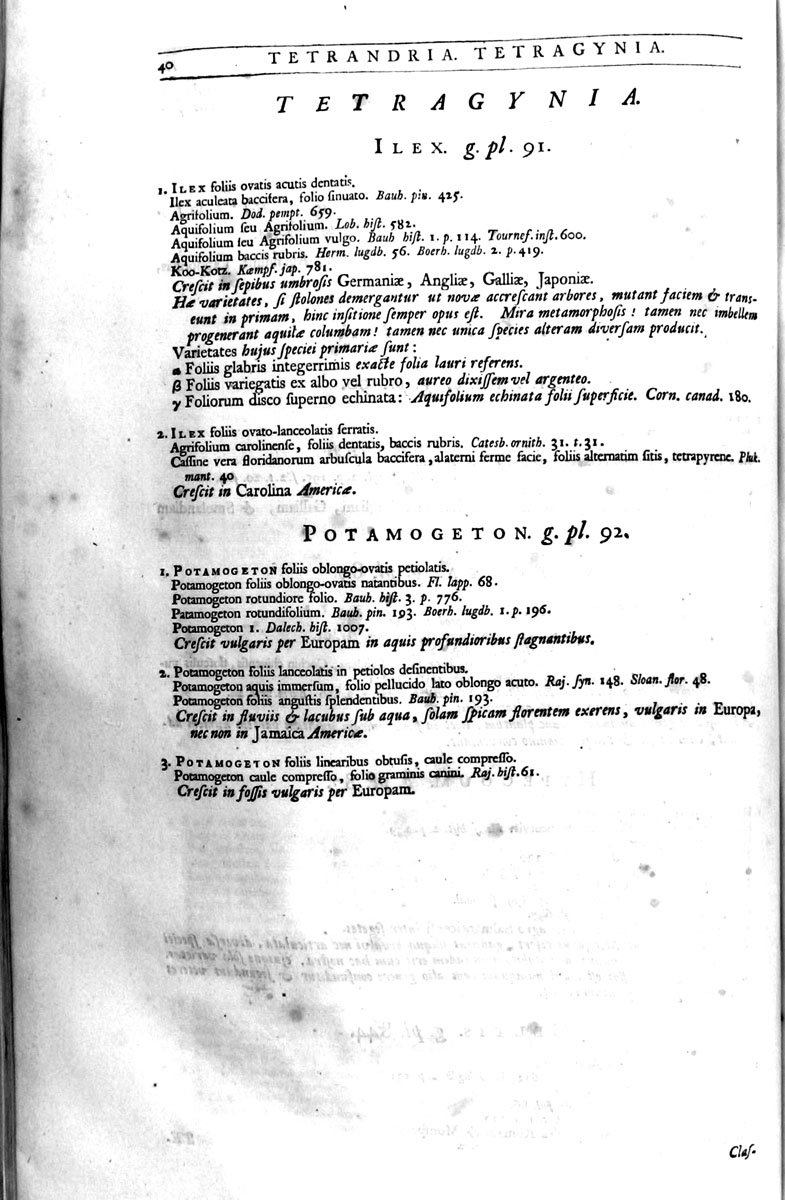 40 TETRANDRIA. TETRAGYNIA.
TETRAGYNIA.
ILEX. g. pl. 91.
1. ILEX foliis ovatis acutis dentatis.
Ilex aculeata baccifera, folio ſinuato. Bauh. pin. 425.
Agrifolium. Dod. pempt. 659.
Aquifolium ſeu Agrifolium. Lob. hiſt. 582.
Aquifolium ſeu Agrifolium vulgo. Bauh hiſt. 1. p. 114. Tournef. inſt. 600.
Aquifolium baccis rubris. Herm. lugdb. 56. Boerh. lugdb. 2. p. 419.
Koo-Kotz. Kæmpf. jap. 781.
Creſcit in ſepibus umbroſis Germaniæ, Angliæ, Galliæ, Japoniæ.
Hæ varietates, ſi ſtolones demergantur ut novæ accreſcant arbores, mutant faciem & trans-
eunt in primam, hinc inſitione ſemper opus eſt. Mira metamorphoſis! tamen nec imbellem
progenerant aquilæ columbam! tamen nec unica ſpecies alteram diverſam producit.
Varietates hujus ſpeciei primariæ ſunt:
α Foliis glabris integerrimis exacte folia lauri referens.
β Foliis variegatis ex albo vel rubro, aureo dixiſſem vel argenteo.
γ Foliorum diſco ſuperno echinata: Aquifolium echinata folii ſuperficie. Corn. canad. 180.
2. ILEX foliis ovato-lanceolatis ſerratis.
Agrifolium carolinenſe, foliis dentatis, baccis rubris. Catesb. ornith. 31. t. 31.
Caſſine vera floridanorum arbuſcula baccifera, alaterni ferme facie, foliis alternatim ſitis, tetrapyrene. Pluk.
mant. 40
Creſcit in Carolina Americæ.
POTAMOGETON. g. pl. 92.
1. POTAMOGETON foliis oblongo-ovatis petiolatis.
Potamogeton foliis oblongo-ovatis natantibus. Fl. lapp. 68.
Potamogeton rotundiore folio. Bauh. hiſt. 3. p. 776.
Patamogeton rotundifolium. Bauh. pin. 193. Boerh. lugdb. 1. p. 196.
Potamogeton 1. Dalech. hiſt. 1007.
Creſcit vulgaris per Europam in aquis profundioribus ſtagnantibus.
2. Potamogeton foliis lanceolatis in petiolos deſinentibus.
Potamogeton aquis immerſum, folio pellucido lato oblongo acuto. Raj. ſyn. 148. Sloan. flor. 48.
Potamogeton foliis anguſtis ſplendentibus. Bauh. pin. 193.
Creſcit in fluviis & lacubus ſub aqua, ſolam ſpicam florentem exerens, vulgaris in Europa,
nec non in Jamaica Americæ.
3. POTAMOGETON foliis linearibus obtuſis, caule compreſſo.
Potamogeton caule compreſſo, folio graminis canini. Raj. hiſt. 61.
Creſcit in foſſis vulgaris per Europam.
Claſ-